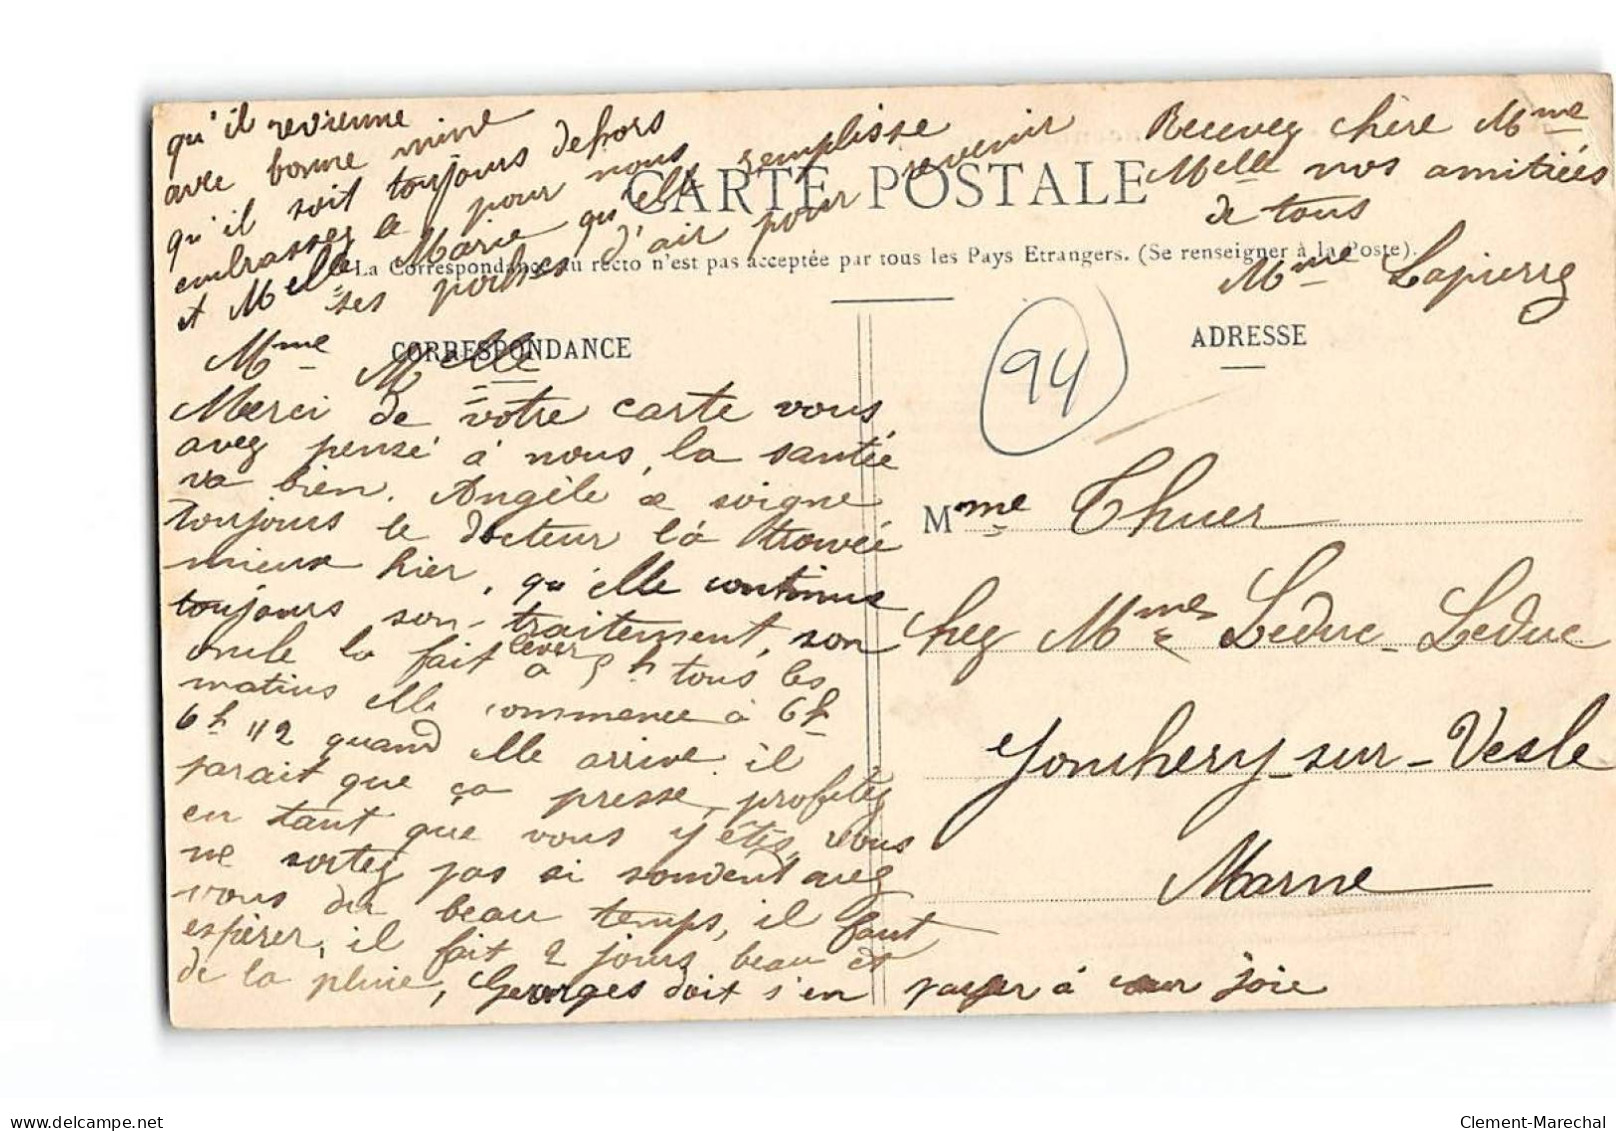 CARTE POSTALE
La Correspondance au recto n'est pas acceptée par tous les Pays Etrangers. (Se renseigner à la Poste).
CORRESPONDANCE
Mme Melle
Merci de votre carte vous
avez pensé à nous, la santée
va bien. Angèle se soigne
toujours le docteur l'à trouvée
mieux hier, qu'elle continue
toujours son traitement, son
oncle la fait lever à 5 h tous les
matins elle commence à 6h
6h 1/2 quand elle arrive il
parait que ça presse, profitez
en tant que vous y êtes, vous
ne sortez pas si souvent avez
vous du beau temps, il faut
espérer, il fait 2 jours beau et
de la pluie, Georges doit s'en payer à coeur joie
qu'il revienne
avec bonne mine
qu'il soit toujours dehors
embrassez le pour nous
et Melle Marie qu'elle remplisse
ses poches d'air pour revenir
Recevez chère Mme
Melle nos amitiées
de tous
Mme Lapierre
ADRESSE
94
Mme Thuer
Chez Mmes Leduc-Leduc
Jonchery-sur-Vesle
Marne
Clement-Marechal